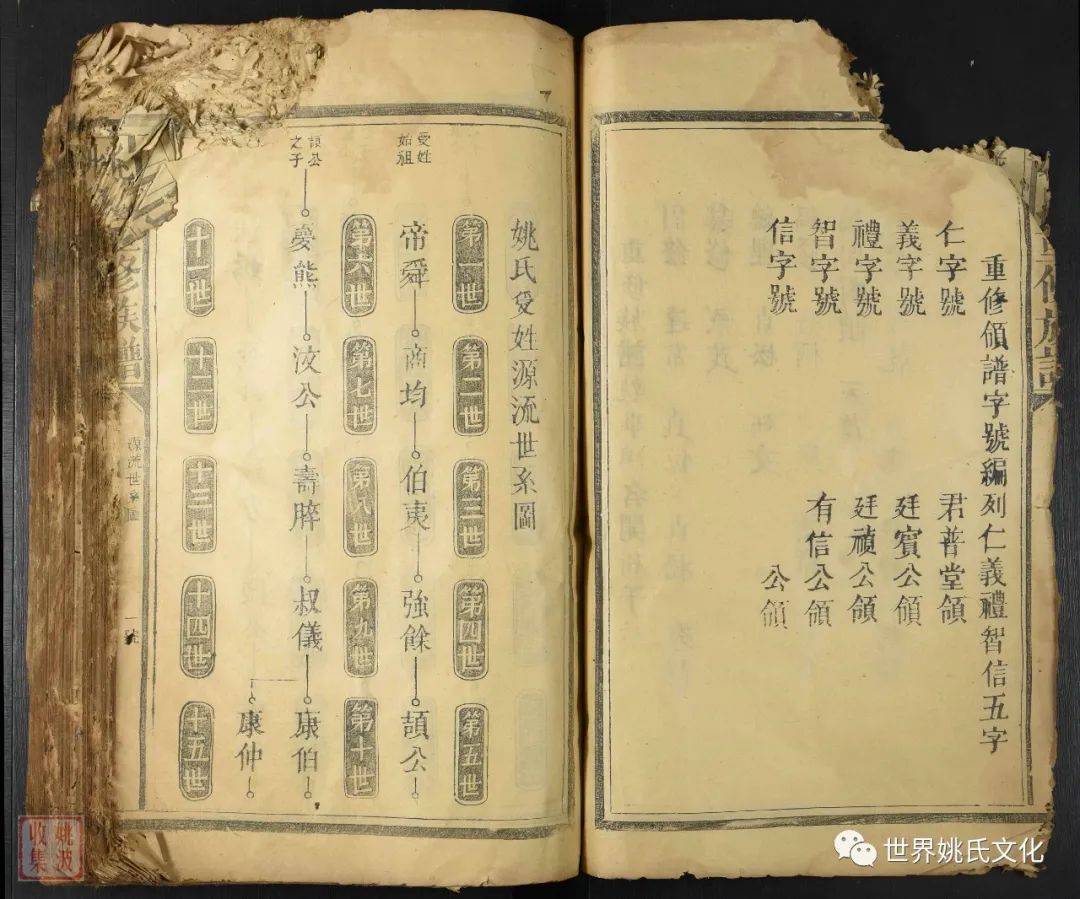 重修領譜字號編列仁義禮智信五字
仁字號 君普堂領
義字號 廷賓公領
禮字號 廷禎公領
智字號 有信公領
信字號 公領
姚氏受姓源流世系圖
第一世 第二世 第三世 第四世 第五世
受姓始祖
帝舜 商均 伯夷 強餘 頡公
第六世 第七世 第八世 第九世 第十世
頡公之子
夢熊 汶公 壽 叔儀 康伯
康仲
十一世 十二世 十三世 十四世 十五世
修族譜
源流世系圖
姚波收集
世界姚氏文化